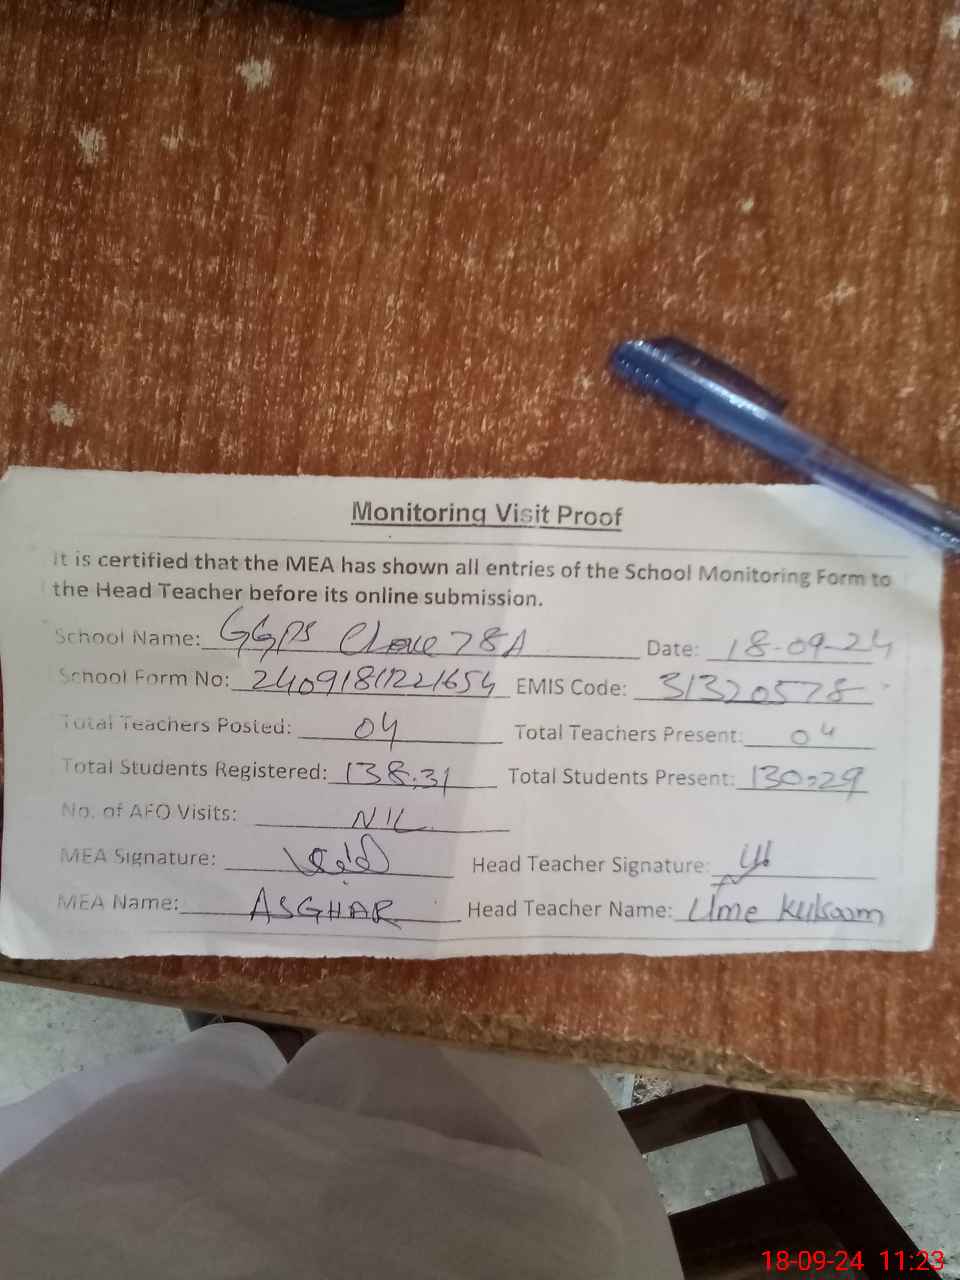 Monitoring Visit Proof
It is certified that the MEA has shown all entries of the School Monitoring Form to
the Head Teacher before its online submission.
School Name: GGPS 78A Date: 18-09-24
School Form No: EMIS Code: 31320578
Total Teachers Posted: 04 Total Teachers Present: 04
Total Students Registered: 138,31 Total Students Present: 130,29
No. of AFO Visits: NIL
MEA Signature: Head Teacher Signature:
MEA Name: ASGHAR Head Teacher Name: Ume Kulsoom
18-09-24 11:23